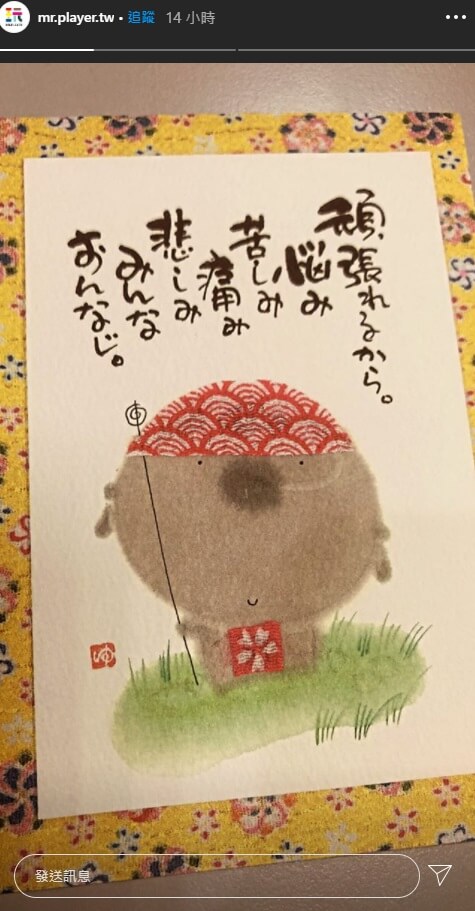 mr.player.tw • 追蹤 14 小時
頑張れるから。
悩み
苦しみ
痛み
悲しみ
みんな
おんなじ。
発送訊息